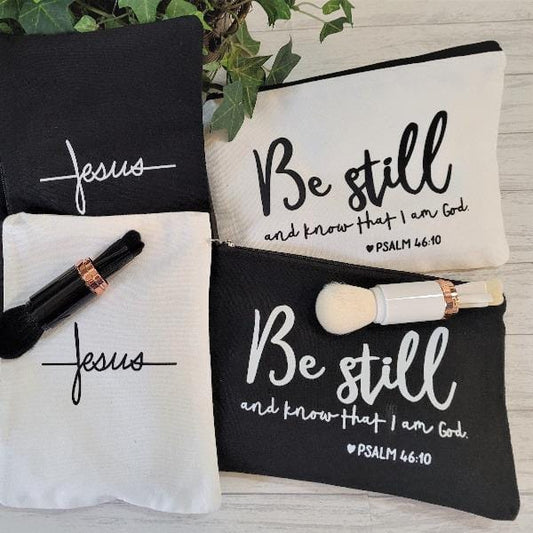 Jesus
Be still
and know that I am God.
♥ PSALM 46:10
Jesus
Be still
and know that I am God.
♥ PSALM 46:10